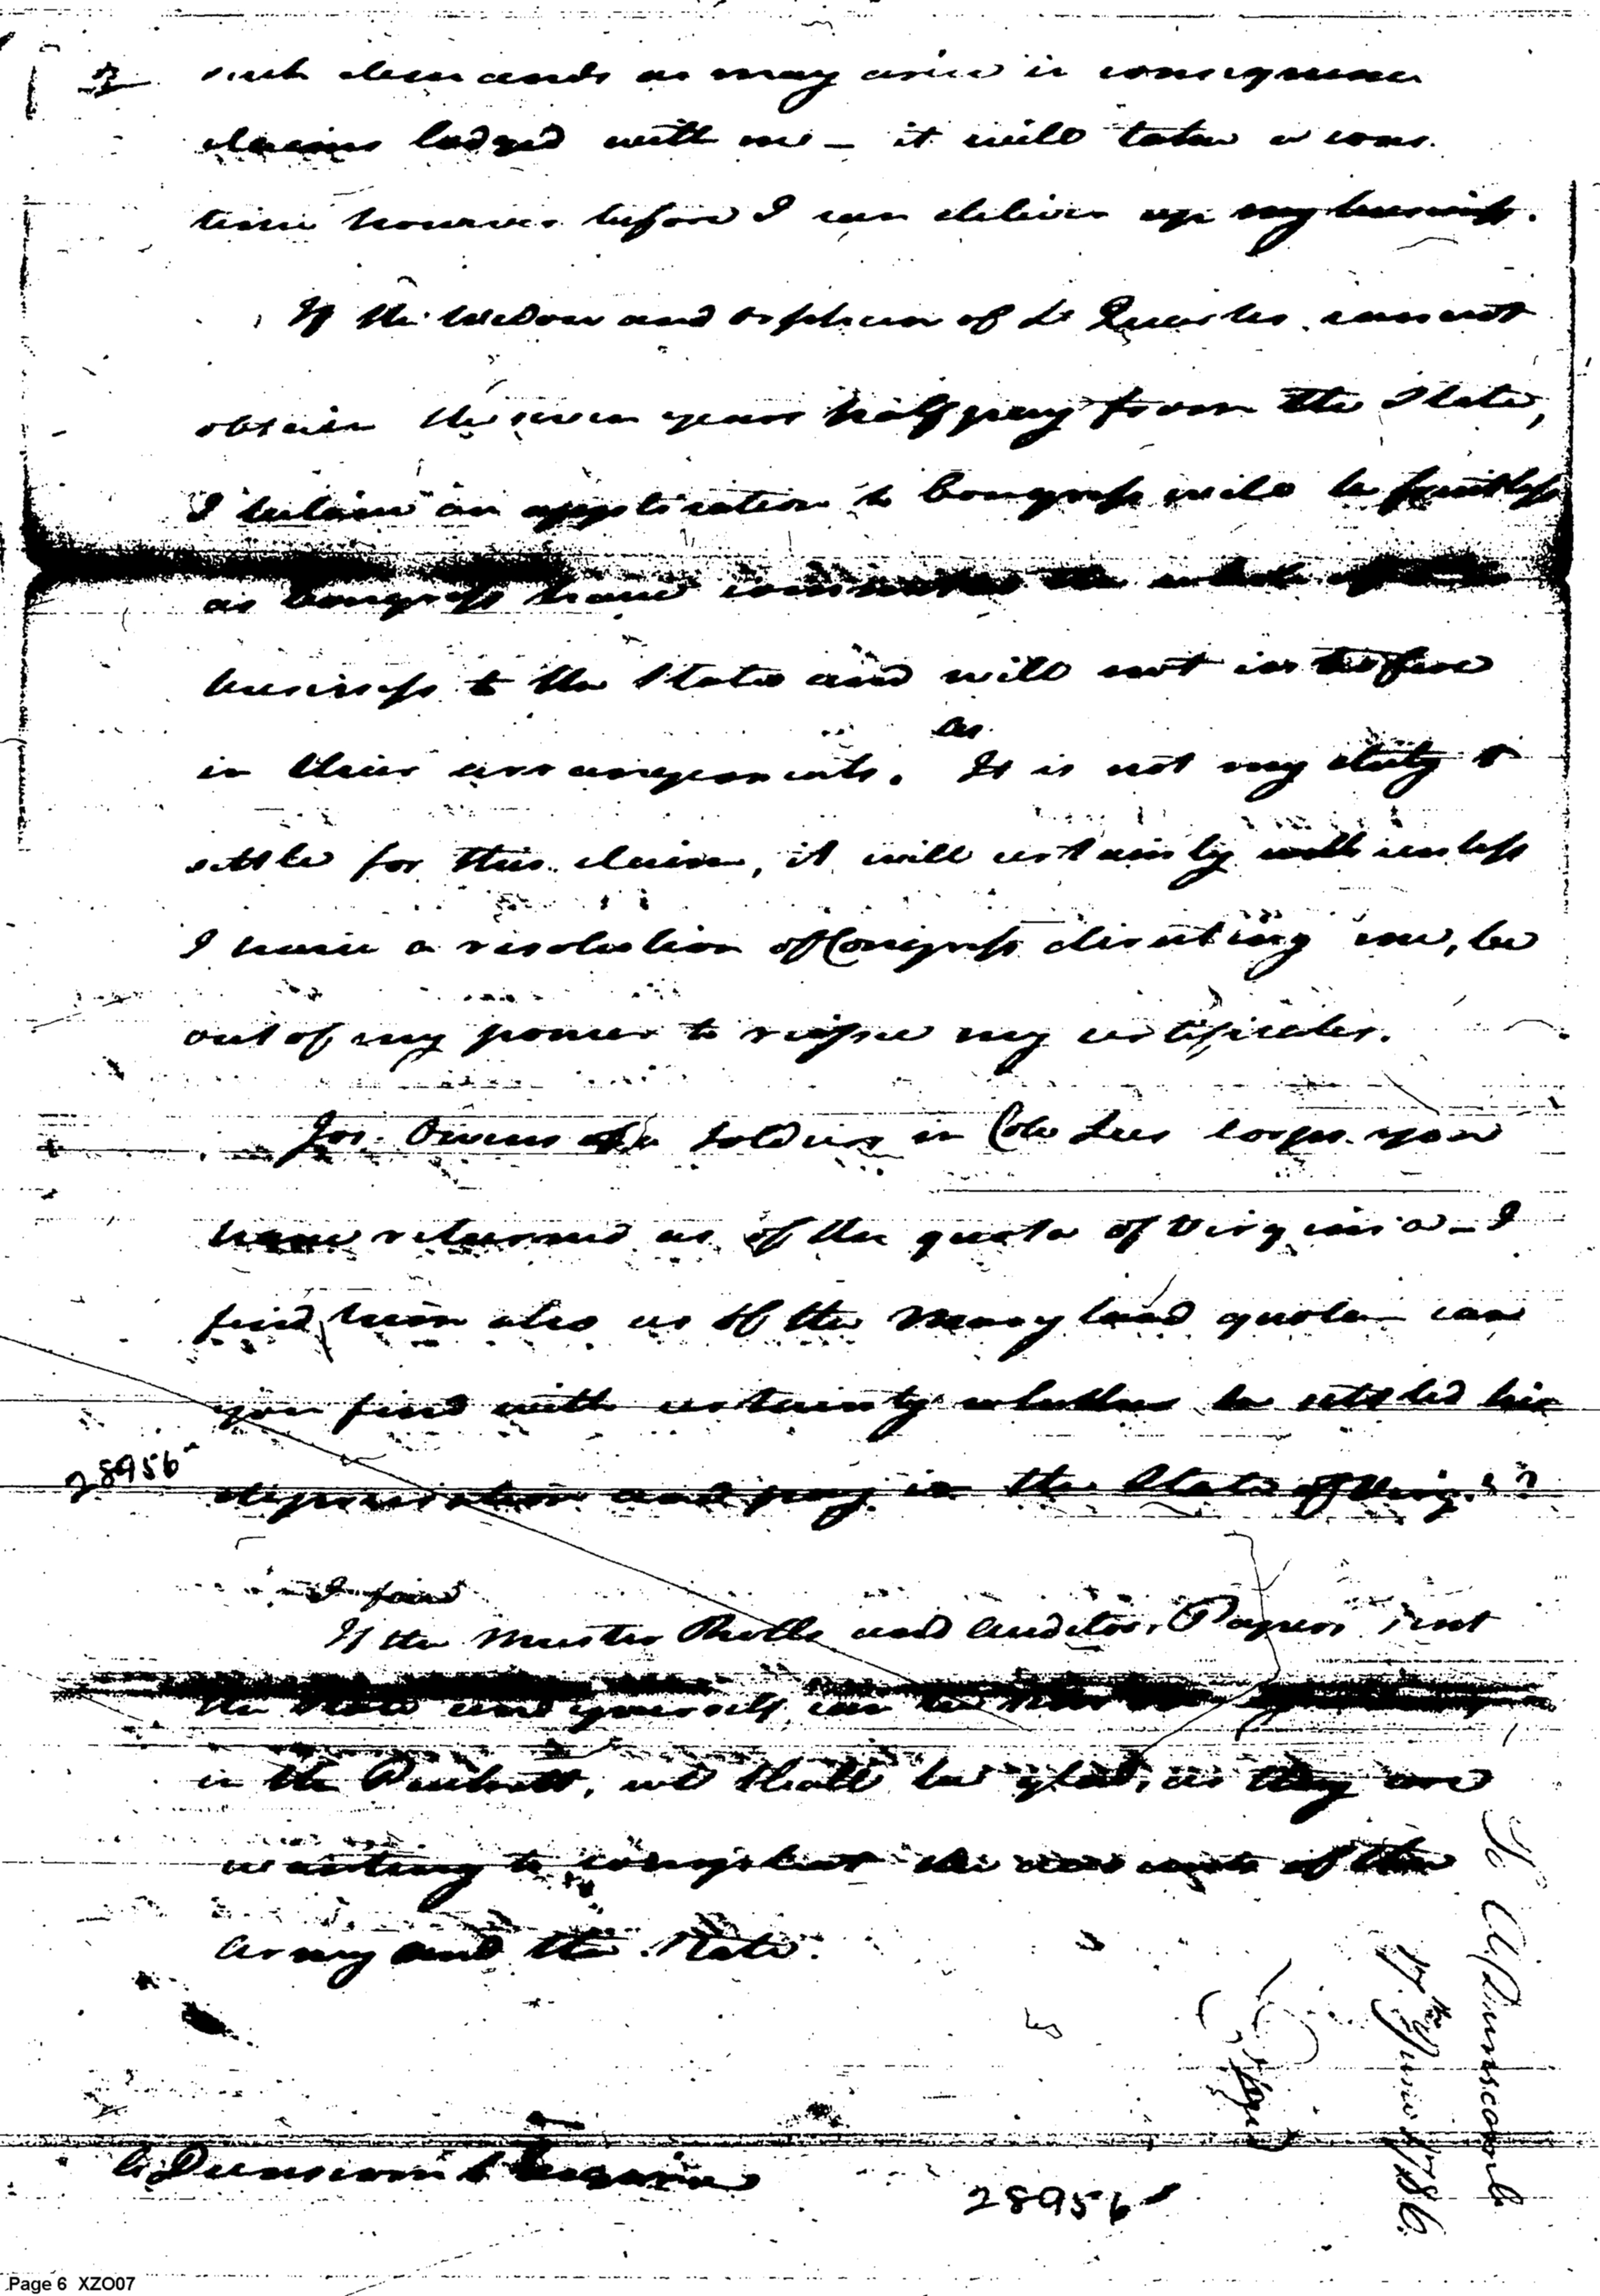 such demands as may arise in consequence
claims lodged with me - it will take a cons.
time however before I can deliver up my business.
If the Widow and orphan of Lt Quarles cannot
obtain the seven years half pay from the State,
I believe an application to Congress will be fruitless
as Congress have committed the whole of
business to the States and will not interfere
as
in their arrangements. It is not my duty to
settle for this claim, it will certainly unless
I have a resolution of Congress directing me, be
out of my power to my certificates.
Jos. Owens a soldier in Colo Lees corps you
have returned as of the quota of Virginia - I
find him also as of the Maryland quota - can
you find with certainty whether he settled his
28956
depreciation and pay in the State of Virg. ?
I find
If the Muster Rolls and Auditors Papers sent
the State and yourself, can be
in the , we shall be glad, as they are
wanting to compleat the accounts of the
Army and the State.
A. Dunscomb Esquire
28956
To A. Dunscomb
17th June 1786.